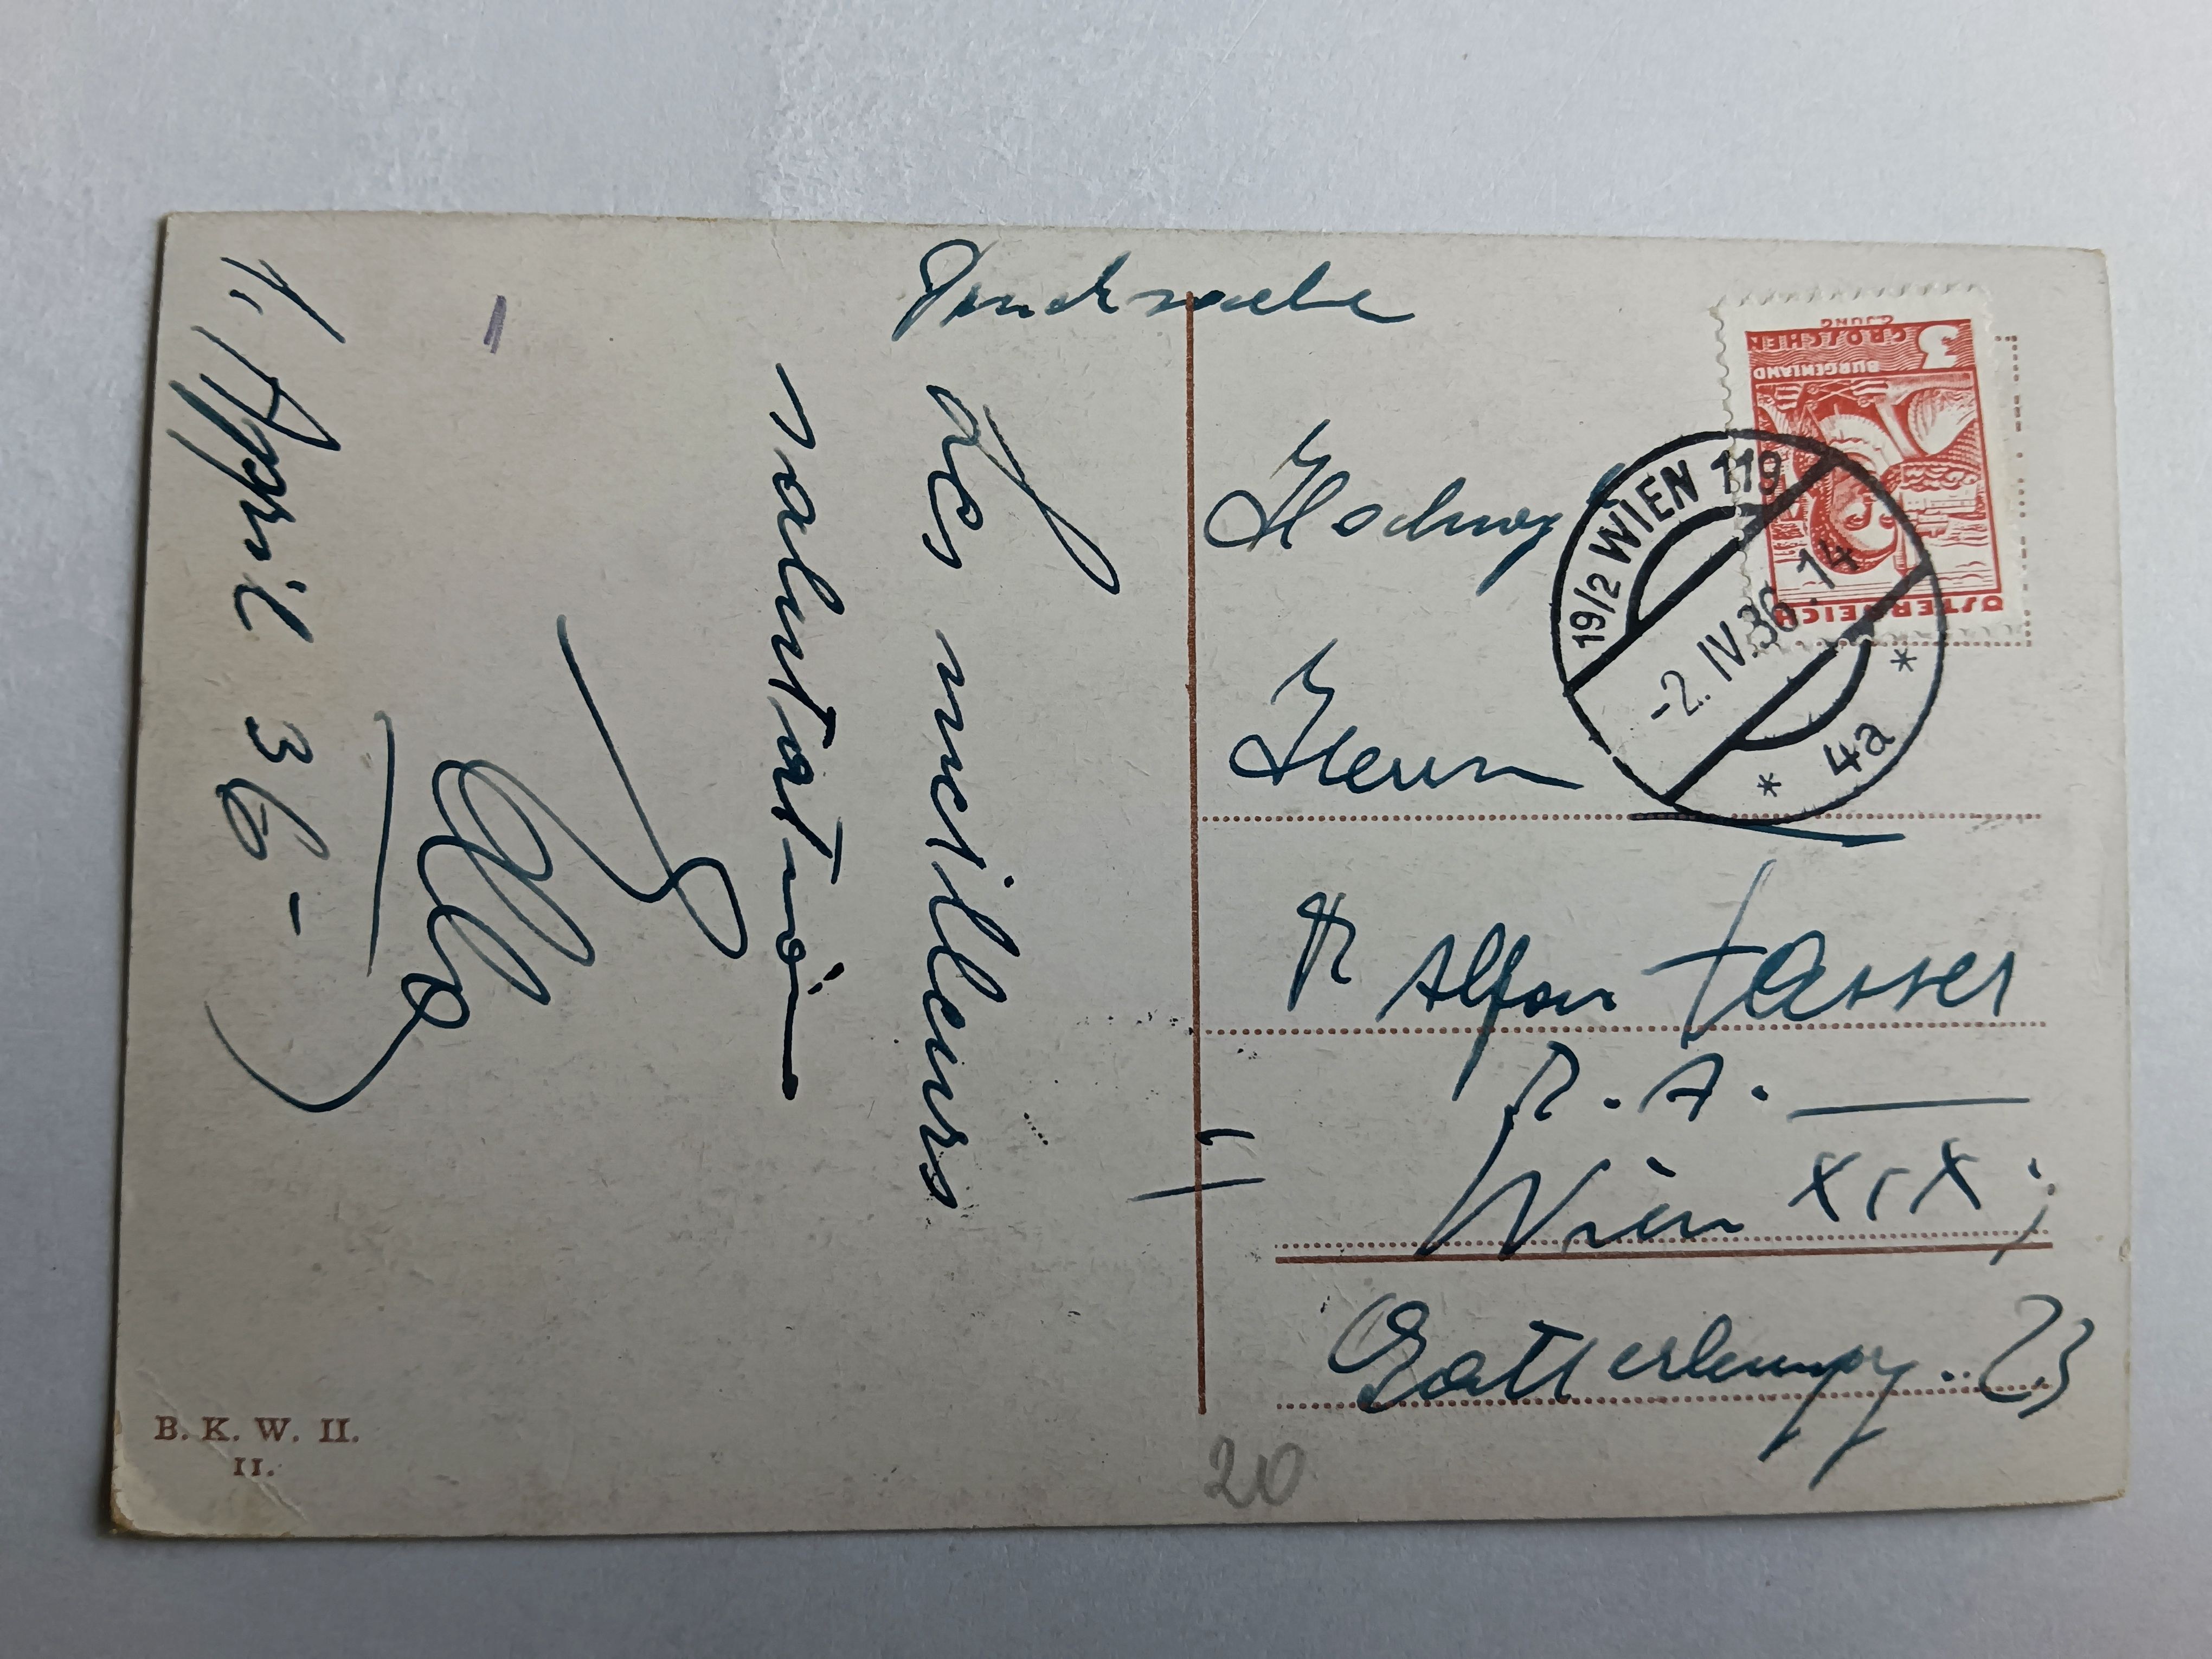 Drucksache
Les meilleurs
salutations
Ella
1. April 36 -
Hochwg
Herrn
Dr Alfons
R. A.
Wien XIX;
23
ÖSTERREICH
BURGENLAND
3 GROSCHEN
G.JUNG
19/2 WIEN 119
-2.IV.36.14
* 4a *
B. K. W. II.
II.
20